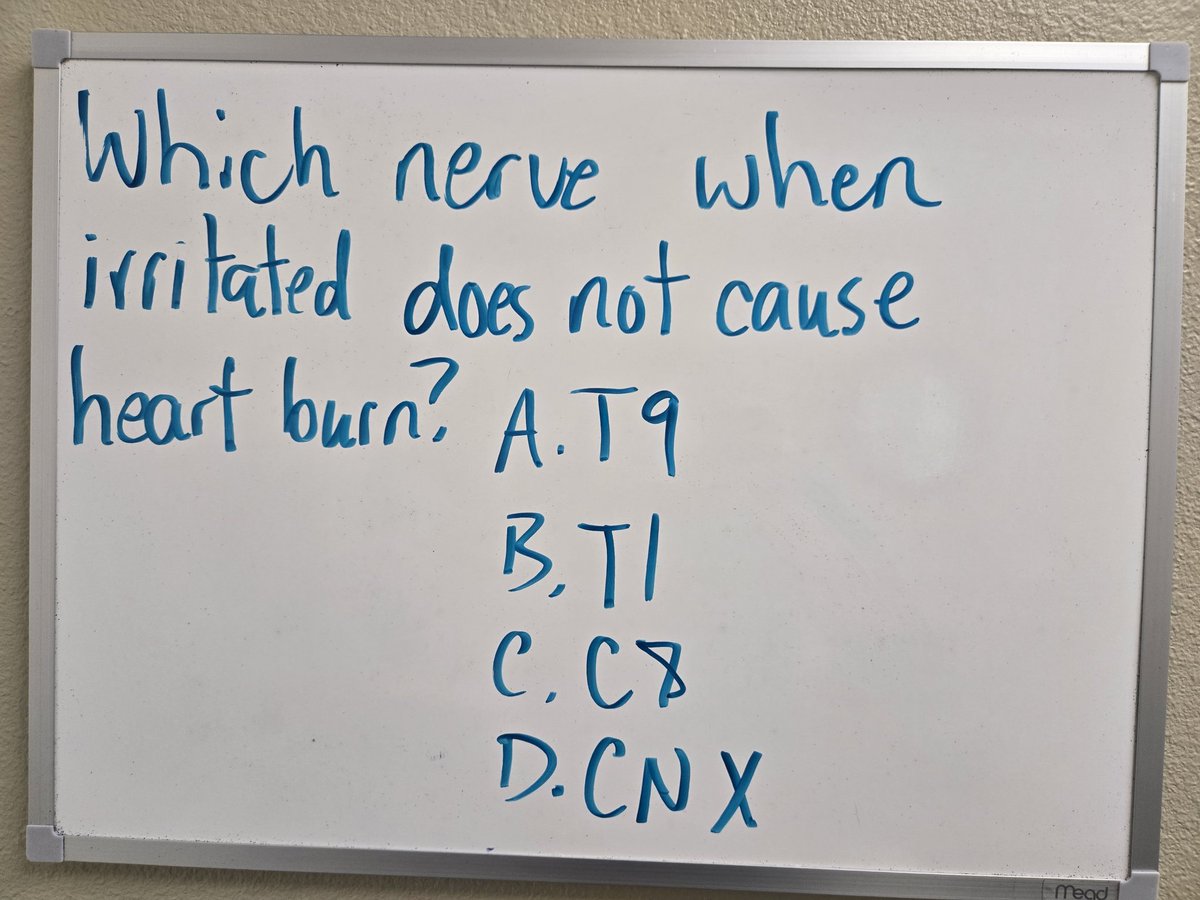 Which nerve when
irritated does not cause
heart burn? A. T9
B. T1
C. C8
D. CN X
Mead